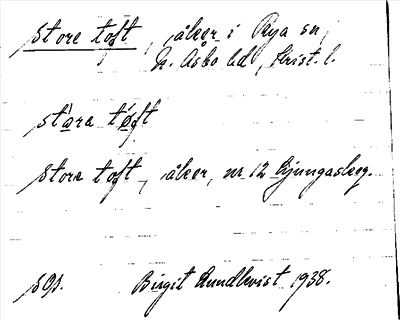 store toft, åker i Rya sn,
N. Åsbo hd, Krist. l.
stora toft
store toft, åker, nr 12 Ljungaskog.
sOp. Birgit Rundkvist 1938.